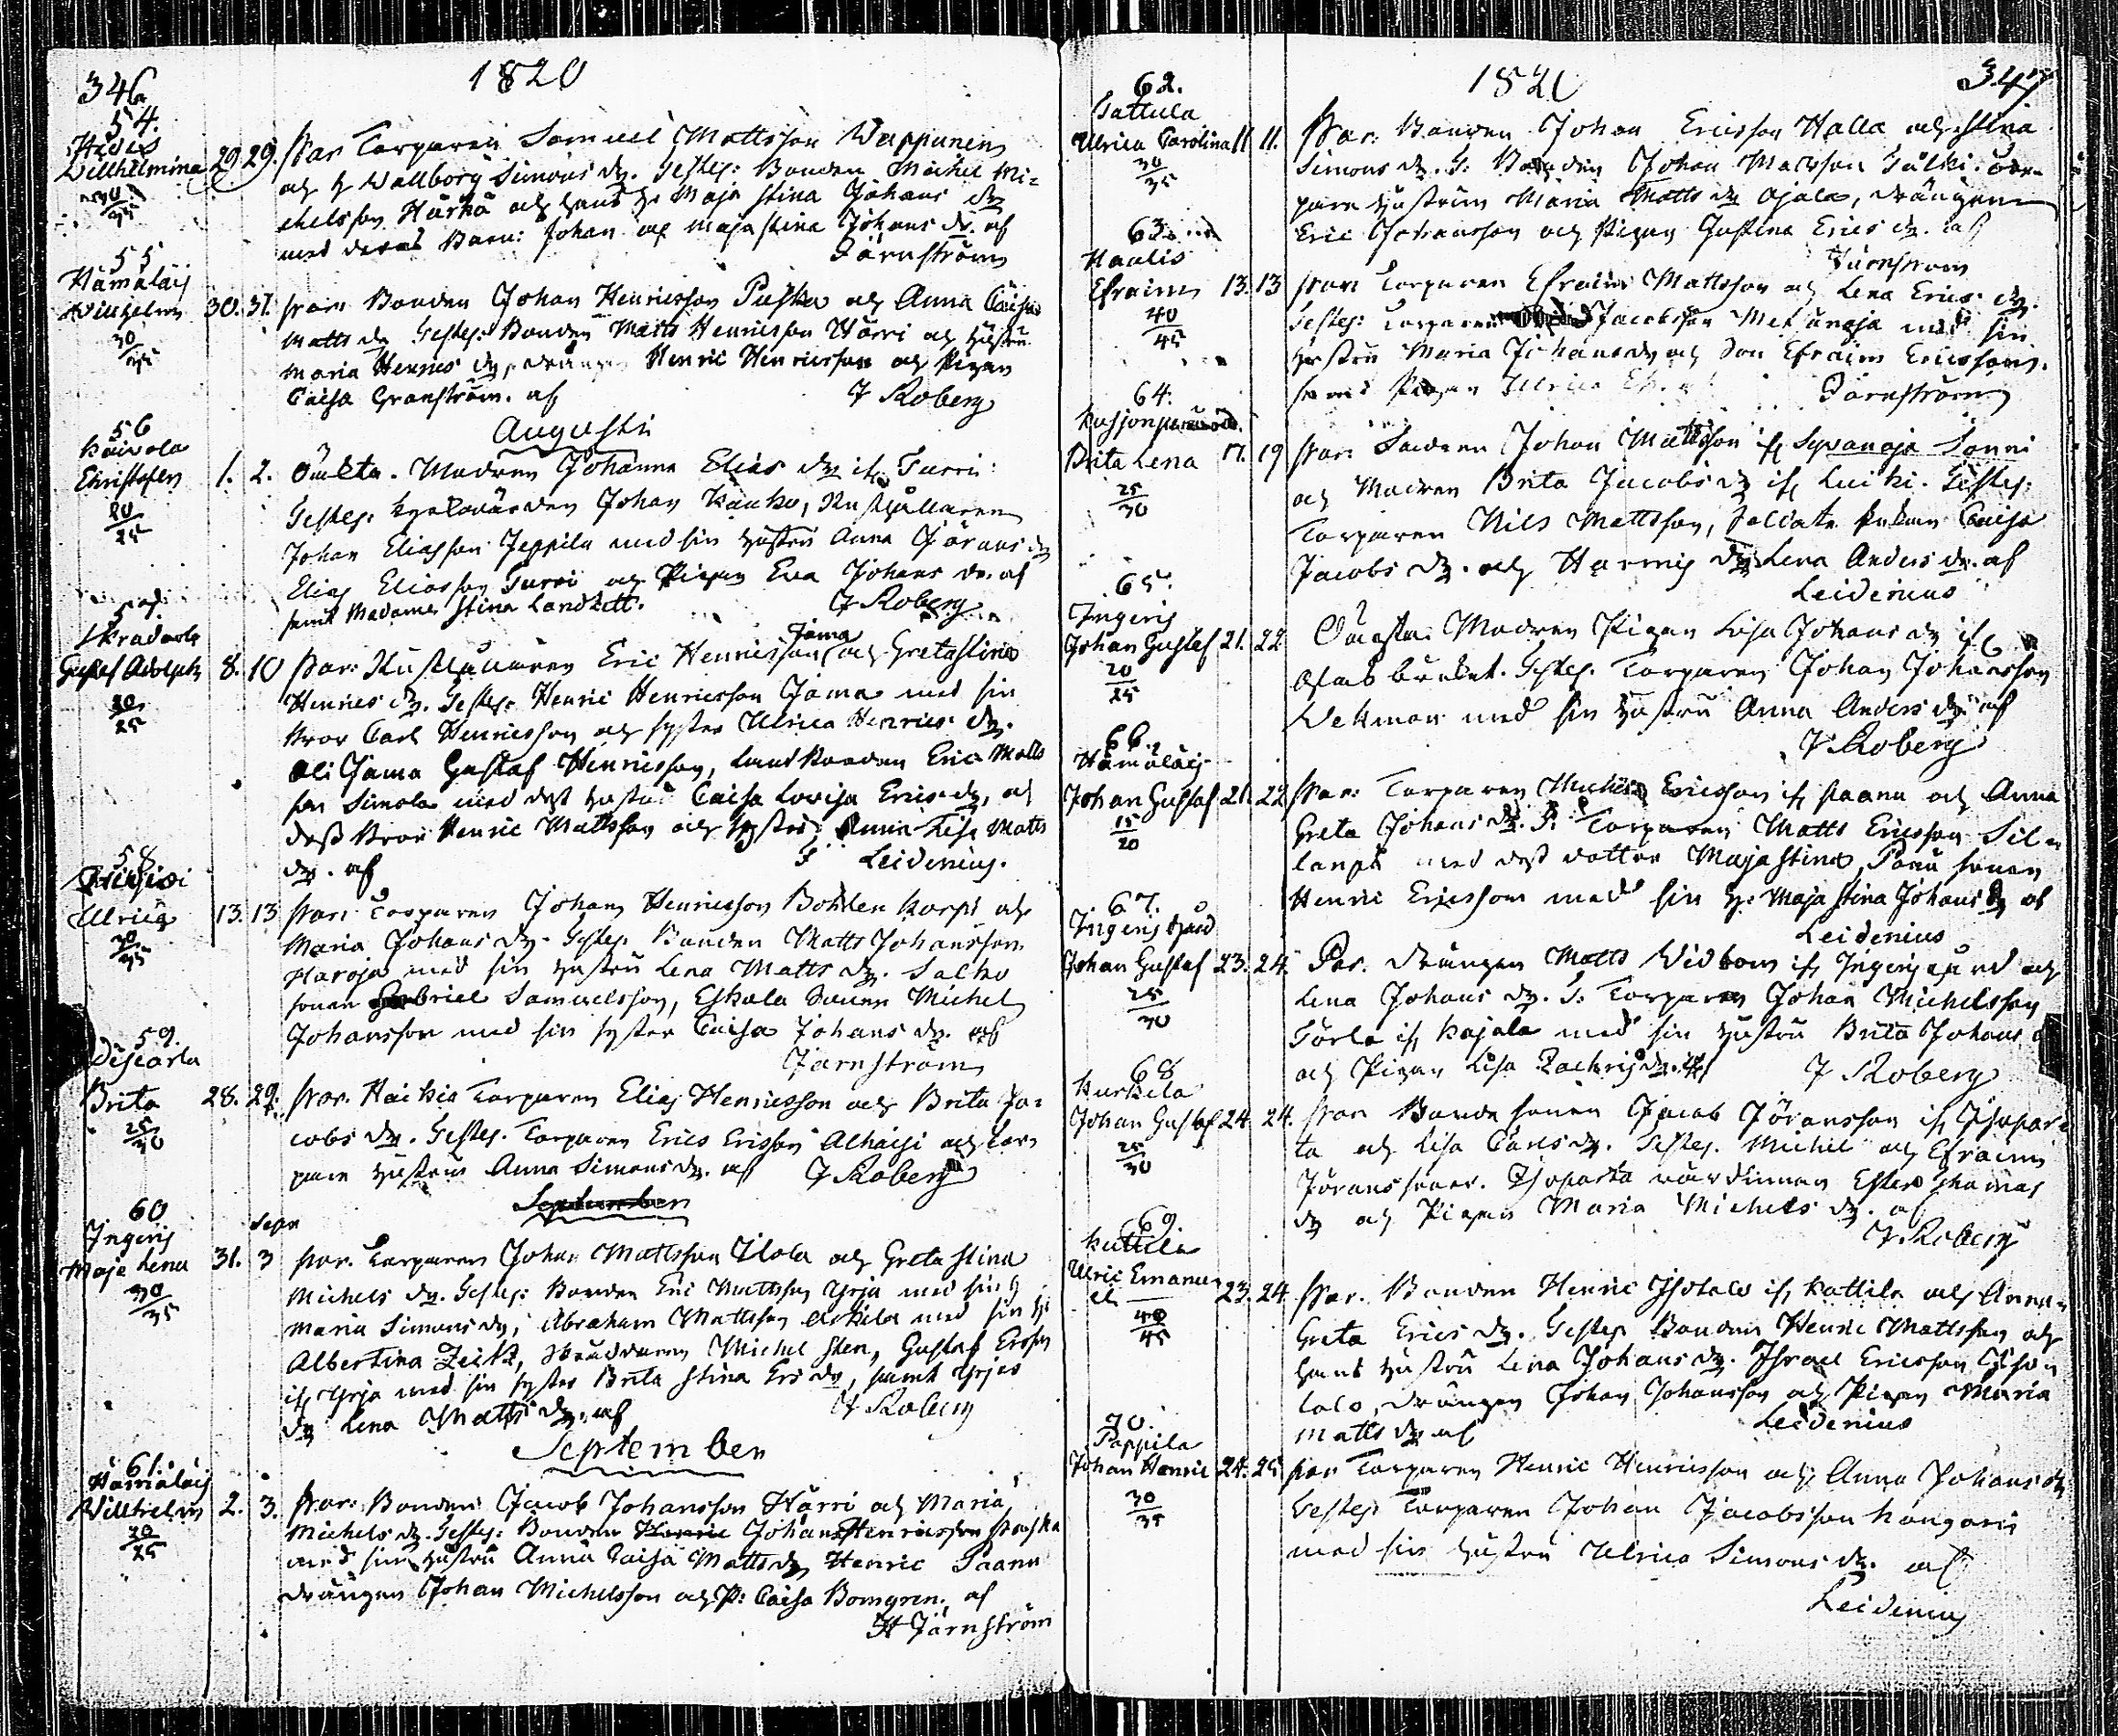 346
1820
54.
Willhelmina 29 29. Par Torparen Samuel Mattsson Wappunen
och H Wallborg Simons dr. Testes: Bonden Michel Mi=
30/35
chelsson Härkä och hans H. Maja Stina Johans dr
med deras Barn: Johan och Maja Stina Johans dr. af
Järnström
55
Hämäläis
Wilhelm 30. 31. Par: Bonden Johan Henricsson Puska och Anna Caisa
30/35
Matts dr Testes: Bonden Matts Henricsson Härri och Hustru
Maria Henrics dr, drängen Henric Henricsson och Pigan
Caisa Granström. af
J Roberg
Augusti
56
Christofer 1. 2. Oäkta. Modren Johanna Elias dr if. Turri
20/25
Testes: Johan Kauko, Rusthållaren
Johan Eliasson Jeppila med sin Hustru Anna Jörans dr
Elias Eliasson Turri och Pigan Eva Johans dr. af
samt Madame Stina Landzett.
J Roberg
57.
Gustaf Adolph 8. 10 Par: Rusthållaren Eric Henricsson Jama och Greta Stina
20/25
Henrics dr. Testes: Henric Henricsson Jama med sin
bror Carl Henricsson och syster Ulrica Henrics dr.
Oli Jama Gustaf Henricsson, Eric Matts
son Simola med dess Hustru Caisa Lovisa Erics dr, och
dess bror Henric Mattsson och Hustru Anna Lisa Matts
dr. af
Leidenius.
58
Ulrica 13. 13 Par: Torparen Johan Henricsson Bohlen Korpi och
30/35
Maria Johans dr. Testes. Bonden Matts Johansson
Haroja med sin Hustru Lena Matts dr. Salko
sonen Gabriel Samuelsson, Eskola sonen Michel
Johansson med sin syster Caisa Johans dr. af
Järnström
59.
Brita 28. 29. Par. Haikis Torparen Elias Henricsson och Brita Ja=
25/30
cobs dr. Testes. Torparen Erics Ersson Alhaisi och Tor
pare Hustrun Anna Simons dr. af J Roberg
September
60
Ingeris
Sept
Maja Lena 31. 3 Par. Torparen Johan Mattsson Ilola och Greta Stina
30/35
Michels dr. Testes: Bonden Eric Mattsson Yrja med sin H
Maria Simons dr, Abraham Mattsson Eskila med sin H:
Albertina Zeitz, Skräddaren Michel Sten, Gustaf Ersson
if. Yrja med sin syster Brita Stina Ers dr, samt Yrjas
dr Lena Matts dr. af
J Roberg
September
61.
Hämäläis
Willhelm 2. 3. Par: Bonden Jacob Johansson Härri och Maria
20/25
Michels dr. Testes: Bonden Henric Johan Henricsson Puska
med sin Hustru Anna Caisa Matts dr Henric Paanu
drängen Johan Michelsson och P: Caisa Bomgren, af
H Järnström
347
1820
62.
Tattula
Ulrica Carolina 11 11. Par: Bonden Johan Ericsson Halla och Stina
30/35
Simons dr. T: Bonden Johan Matsson Tålki.
pare Hustrun Maria Matts dr Ojala, drängen
Eric Johansson och Pigan Justina Erics dr. af
Järnström
63.
Haalis
Efraim 13. 13 Par: Torparen Efraim Mattsson och Lena Erics dr.
40/45
Testes: Torparen Jacobsson Metsänoja med sin
Hustru Maria Johans dr och son Efraim Ericsson
samt Pigan Ulrica
Järnström
64.
Brita Lena 17. 19 Par: Johan Mattsson if. Syvänoja Sonni
25/30
och Modren Brita Jacobs dr if. Luiki. Testes:
Torparen Nils Mattsson, Soldate Enkan Caisa
Jacobs dr. och Lena Anders dr. af
Leidenius
65.
Ingeris
Johan Gustaf 21. 22 Oäkta: Modren Pigan Lisa Johans dr if.
20/25
Testes. Torparen Johan Johansson
Wekman med sin Hustru Anna Anders dr af
J Roberg
66.
Hämäläis
Johan Gustaf 21. 22 Par: Torparen Michel Ericsson if. Paanu och Anna
15/20
Greta Johans dr. T: Torparen Matts Ericsson Sil=
lanpä med dess dotter Maja Stina, Paanu sonen
Henric Ericsson med sin H: Maja Stina Johans dr af
Leidenius
67.
Johan Gustaf 23. 24. Par. drängen Matts Widbom if. Ingeris och
25/30
Lena Johans dr. T: Torparen Johan Michelsson
Turla if. Kajala med sin Hustru Brita Johans
och Pigan Lisa Zachris dr. af
J Roberg
68
Kurkela
Johan Gustaf 24 24. Par Bonde sonen Jacob Jöransson if. Isopar=
25/30
ta och Lisa Carls dr. Testes. Michel och Efraim
Jörans söner. Isoparta värdinnan Ester Thomas
dr och Pigan Maria Michels dr. af
J Roberg
69.
Kättilä
Ulric Emanu=
el 23. 24 Par. Bonden Henric Isotalo if. Kattila och Anna
40/45
Greta Erics dr. Testes Bonden Henric Mattsson och
hans Hustru Lena Johans dr. Israel Ericsson Iso=
talo, drängen Johan Johansson och Pigan Maria
Matts dr af
Leidenius
70.
Pappila
Johan Henric 24. 25 Par Torparen Henric Henricsson och Anna Johans dr
30/35
Testes: Torparen Johan Jacobsson Kangaris
med sin Hustru Ulrica Simons dr. af
Leidenius